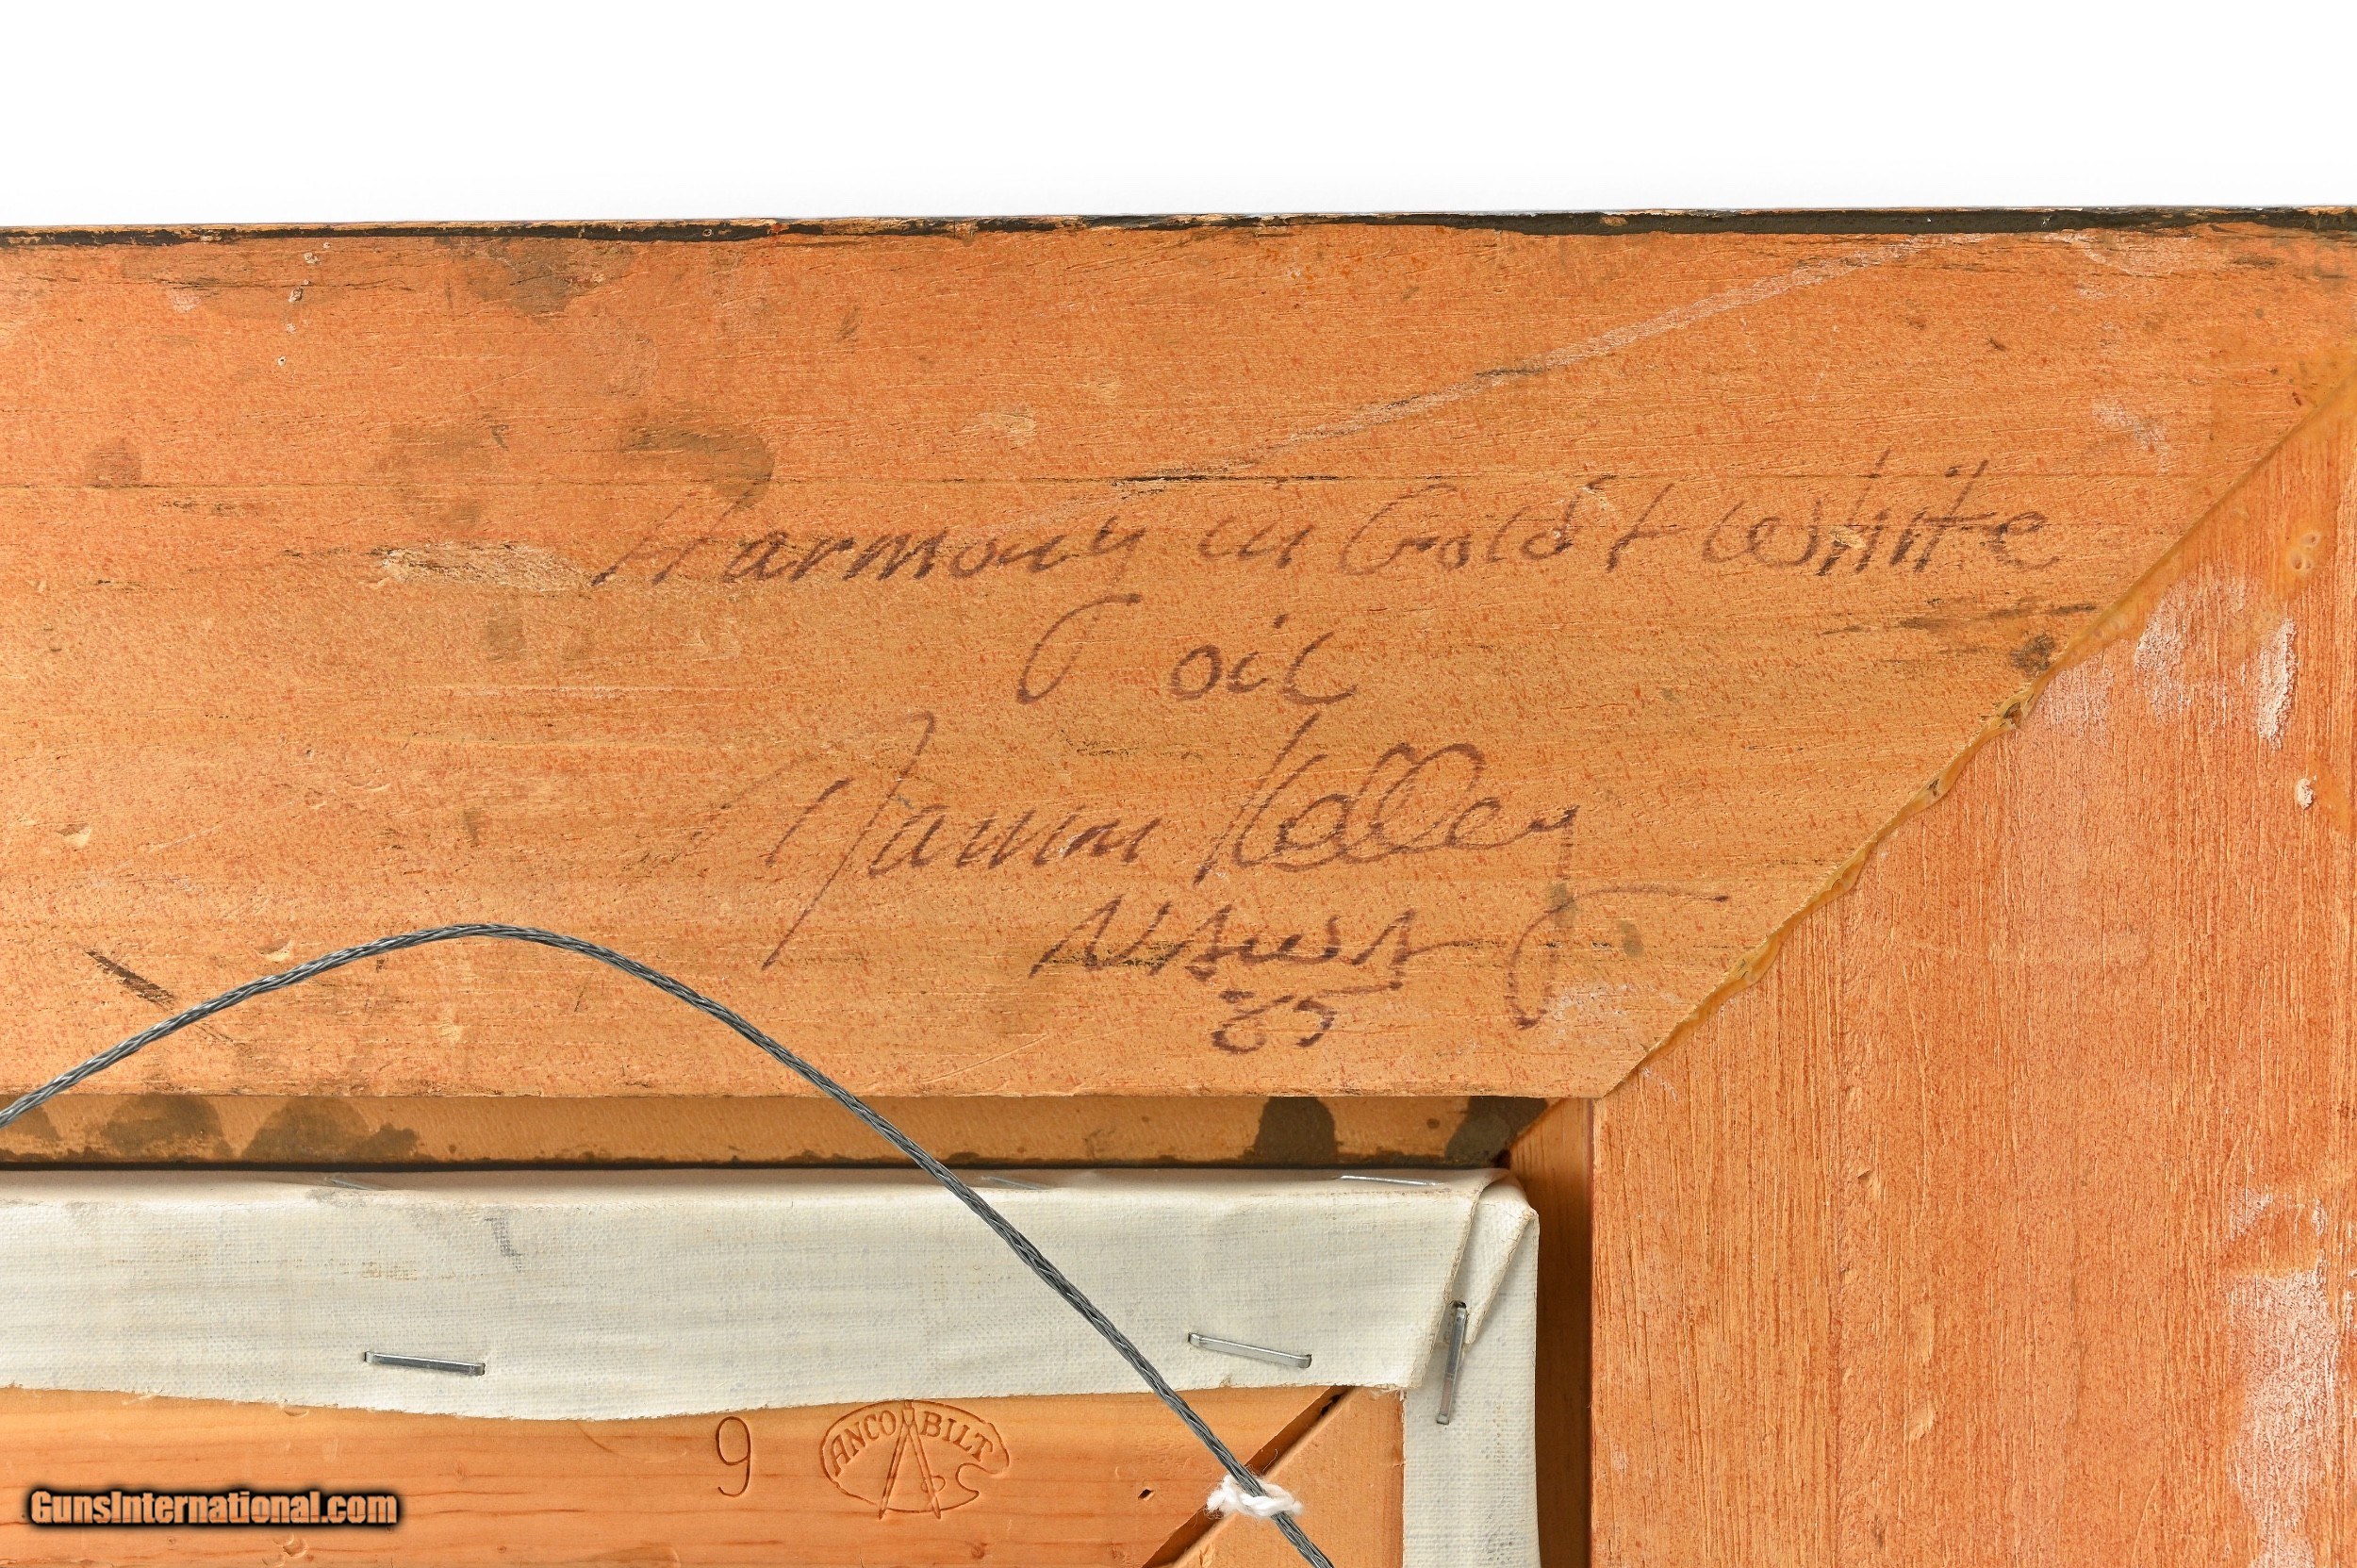 Harmony in Gold + White
oil
Ramon Kelley
NSWS
85
9
ANCO BILT
GunsInternational.com